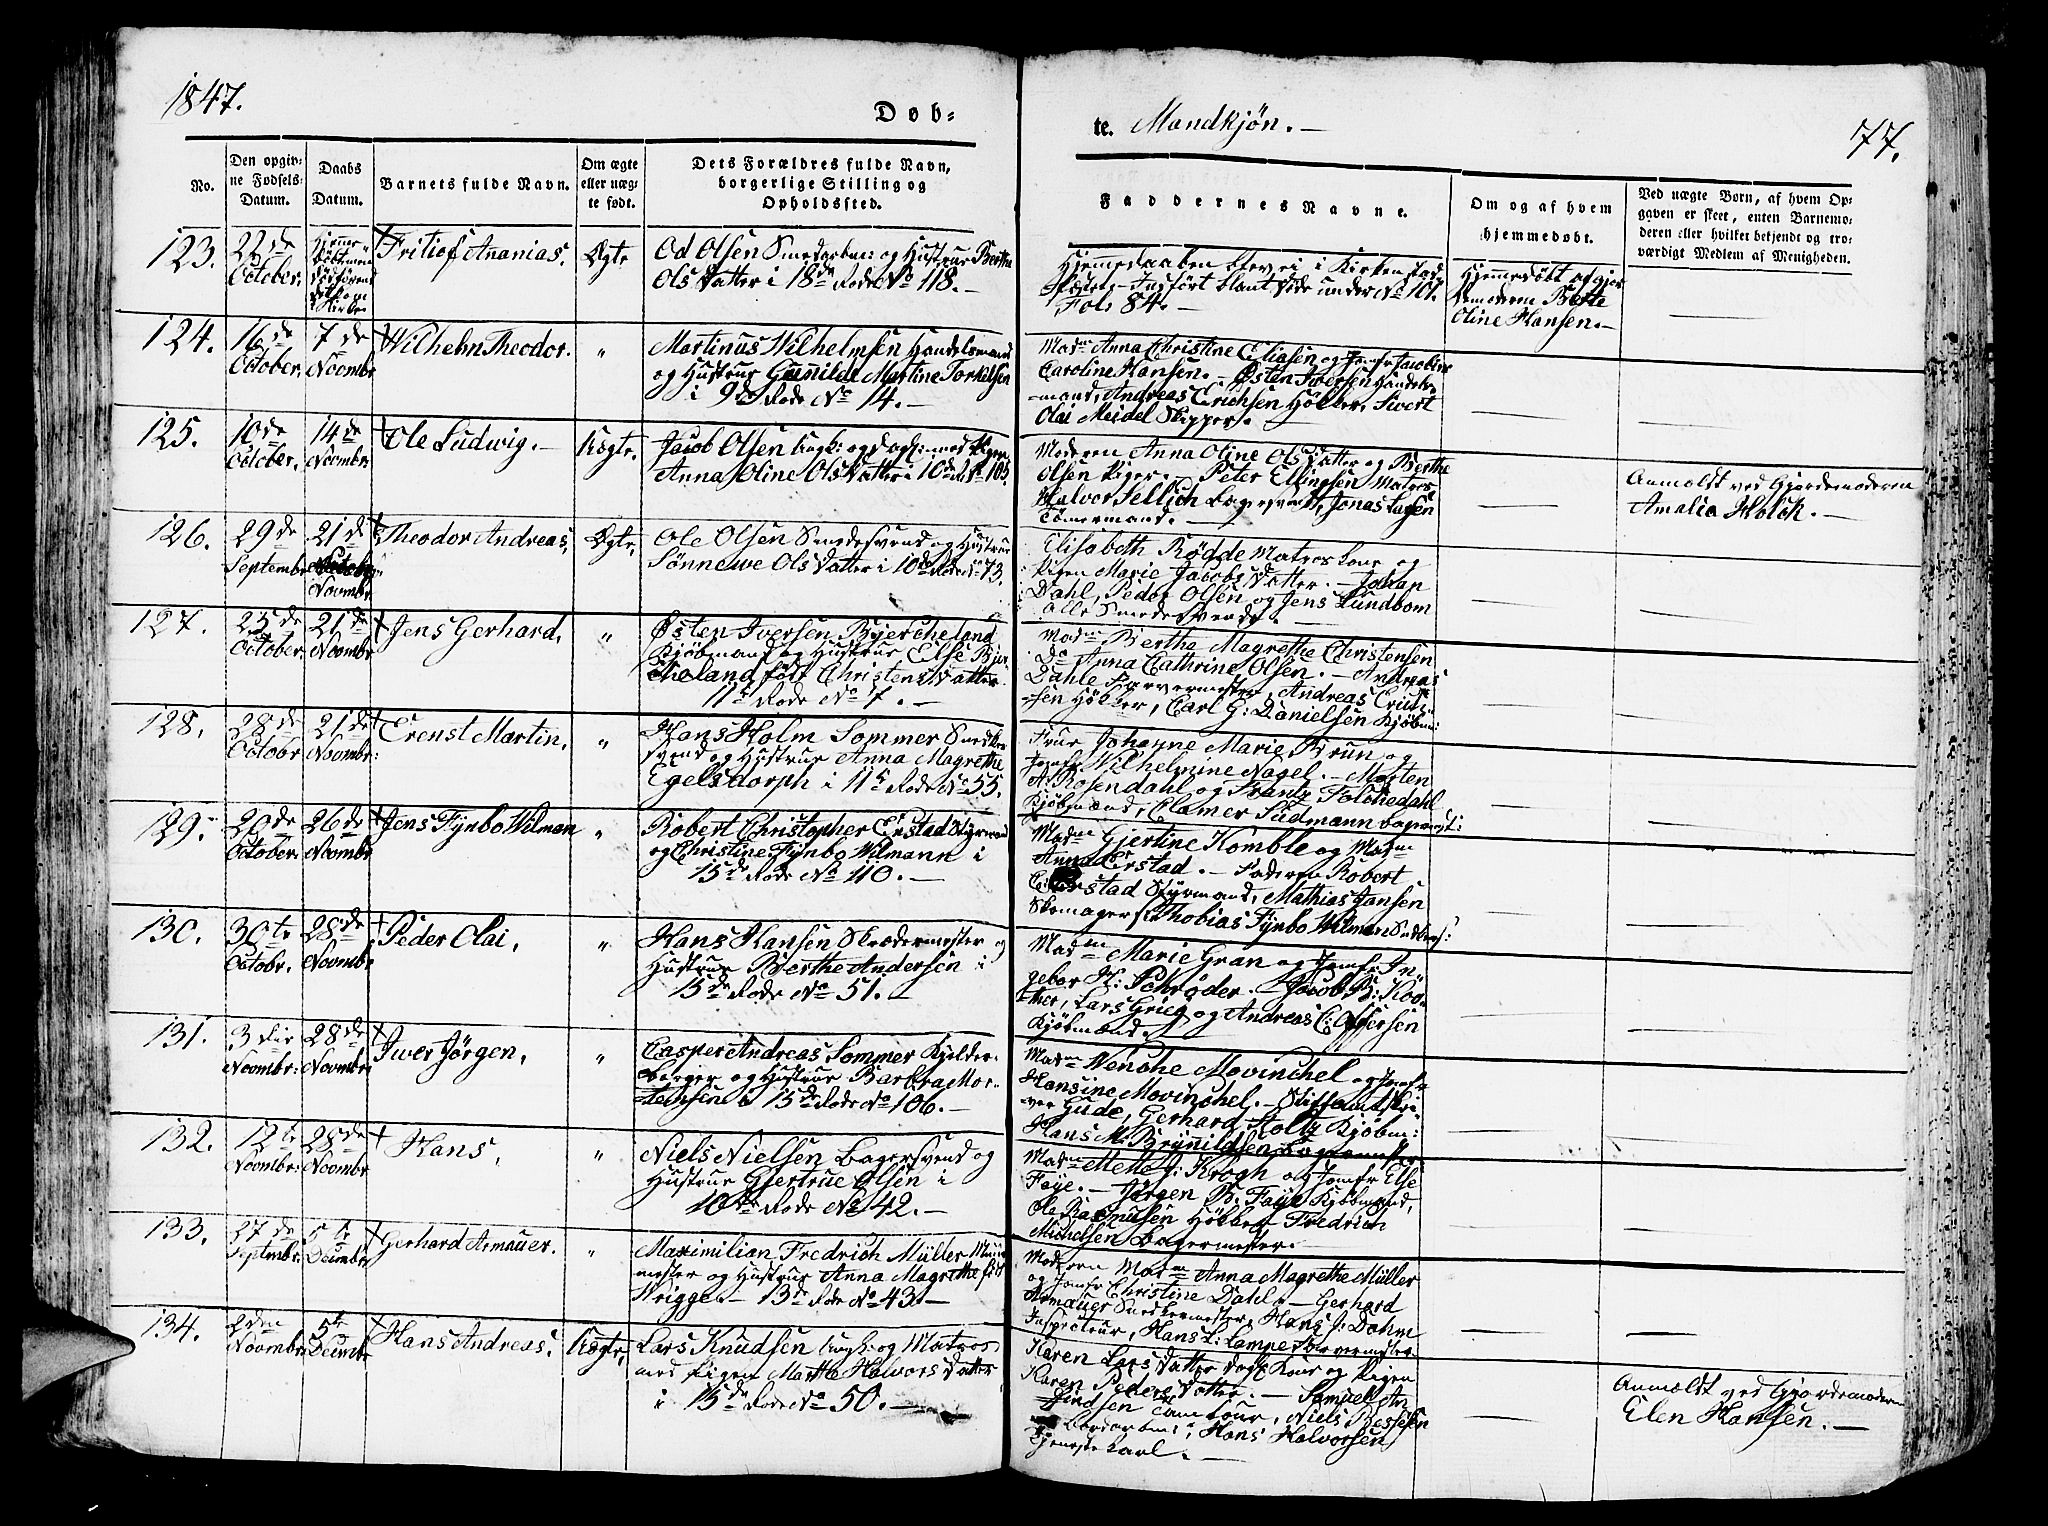 1847.
Døb-
te. Mandkjøn. —
77.
No.
Den opgiv-
ne Fødsels-
Datum.
Daabs
Datum.
Barnets fulde Navn.
Om ægte
eller uæg-
te født.
Dets Forældres fulde Navn,
borgerlige Stilling og
Opholdssted.
Faddernes Navne.
Om og af hvem
hjemmedøbt.
Ved uægte Børn, af hvem Op-
gaven er skeet, enten Barnemo-
deren eller hvilket bekjendt og tro-
værdigt Medlem af Menigheden.
123.
22de
October.
Fritiof Ananias.
Ægte
Od Olsen Smedarbm: og Hustrue Berthe
Olsdatter i 18de Rode No 118. —
Hjemmedaaben blev ei i Kirken stad-
fæstet - Indført blant Døde under No 101.
Fol. 84. —
Hjemmedøbt af Gjor-
demoderen Berthe
Oline Hansen. —
124.
16de
October.
7de
Novmbr
Wilhelm Theodor.
"
Martinus Wilhelmsen Handelsmand
og Hustrue Gunilde Martine Torkilsen
i 9de Rode No 14. —
Madme Anna Christine Eliasen og Jomfr Jacobine
Caroline Hansen. — Østen Iversen Handels-
mand, Andreas Erichsen Høkker, Sivert
Olai Meidel Skipper. —
125.
10de
October.
14de
Novmbr:
Ole Ludwig. —
Uægte.
Jacob Olsen Ungk: og Dagk: med Pigen
Anna Oline Olsdatter i 10de R No 105.
Moderen Anna Oline Olsdatter og Berthe
Olsen Piger. — Peter Ellingsen Matros
Halvor Sellich Bagersvend, Jonas Lugen
Tømermand. —
Anmeldt ved Gjordemoderen
Amalia Holck. —
126.
29de
Septembr
21de
Novmbr
Theodor Andreas,
Ægte,
Ole Olsen Smedesvend og Hustrue
Sønnewe Olsdatter i 10de Rode No 73.
Elisabeth Rødde Matroskone og
Pigen Marie Jacobsdatter. — Johan
Dahl, Peder Olsen og Jens Lundbom
alle Smedesvende. —
127.
25de
October.
21de
Novmbr
Jens Gerhard,
"
Østen Iversen Bjercheland
Kjøbmand og Hustrue Else Bjer-
cheland født Christensdatter
11te Rode No 7. —
Madme Berthe Magrethe Christensen
Do Anna Cathrine Olsen. — Andreas
Dahle Farvermester, Andreas Erich-
sen Høkker, Carl G: Danielsen Kjøbm:
128.
28de
Octobr
21de
Novmbr:
Ernst Martin,
"
Hans Holm Sommer Snedker-
svend og Hustrue Anna Magrethe
Egelsdorph i 11te Rode No 55.
Frue Johanne Marie Brun og
Jomfr Wilhelmine Nagel. — Morten
A: Rosendahl og Frantz Folchedahl
Kjøbmænd, Elamer Sudmann Bagermst:
129.
20de
October:
26de
Novmbr
Jens Fynbo Wilman
"
Robert Christopher Erstad Styrmand
og Christine Fynbo Wilmann i
15de Rode No 110. —
Madme Gjertine Komble og Madme
Anna Erstad. — Faderen Robert
C: Erstad Styrmand, Mathias Jansen
Skomagers: Thobias Fynbo Wilman Snedkers:
130.
30te
Octobr.
28de
Novmbr
Peder Olai,
"
Hans Hansen Skrædermester og
Hustrue Berthe Andersen i
15de Rode No 51. —
Madme Marie Gran og Jomfr In-
gebor H: Schrøder. — Jacob B: Koo-
ther, Lars Grieg og Andreas C: Offersen
Kjøbmænd. —
131.
3die
Novmbr:
28de
Novmbr:
Iver Jørgen,
"
Casper Andreas Sommer Kjelder-
borger og Hustrue Barbra Mor-
tensen i 15de Rode No 106. —
Madme Wenche Mowinchel og Jomfr
Hansine Mowinchel. — Stiftsamtskri-
ver Gude, Gerhard Holtz Kjøbm:
Hans M: Brynildsen Bagermester
132.
12te
Novmbr:
28de
Novmbr
Hans,
"
Niels Nielsen Bagersvend og
Hustrue Gjertrue Olsen i
10de Rode No 42. —
Madme Mette J: Krogh og Jomfr Else
Faye. — Jørgen B: Faye Kjøbmand,
Ole Rasmusen Høkker Fredrich
Michelsen Bagermester. —
133.
27de
Septmbr:
5te
Decmbr
Gerhard Armauer.
"
Maximilian Fredrich Müller Muur-
mester og Hustrue Anna Magrethe født
Wrigge — 13de Rode No 43. —
Moderen Madme Anna Magrethe Müller
og Jomfr Christine Dahl. — Gerhard
Armauer Snedkermester, Hans J: Dahm
Inspecteur, Hans L: Lampe Farvermester
134.
2den
Novmbr:
5te
Decmbr
Hans Andreas,
Uægte,
Lars Knudsen Ungk: og Matros
med Pigen Marthe Halvorsdatter
i 15de Rode No 50. —
Karen Larsdatter Dagk Kone og Pigen
Karen Pedersdatter. — Samuel An-
findsen Tambour, Niels Bessesen
Bordarbm:, Hans Halvorsen
Tjenestekarl. —
Anmeldt ved Gjordemoderen
Elen Hansen. —